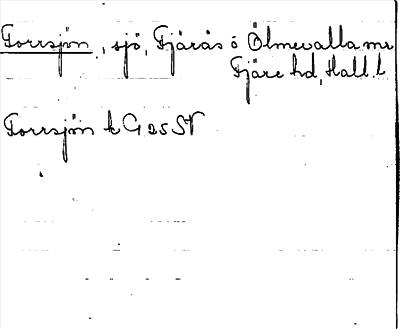 Torrsjön, sjö, Fjärås o Ölmevalla snr
Fjäre hd, Hall. l
Torrsjön k G 25 SV